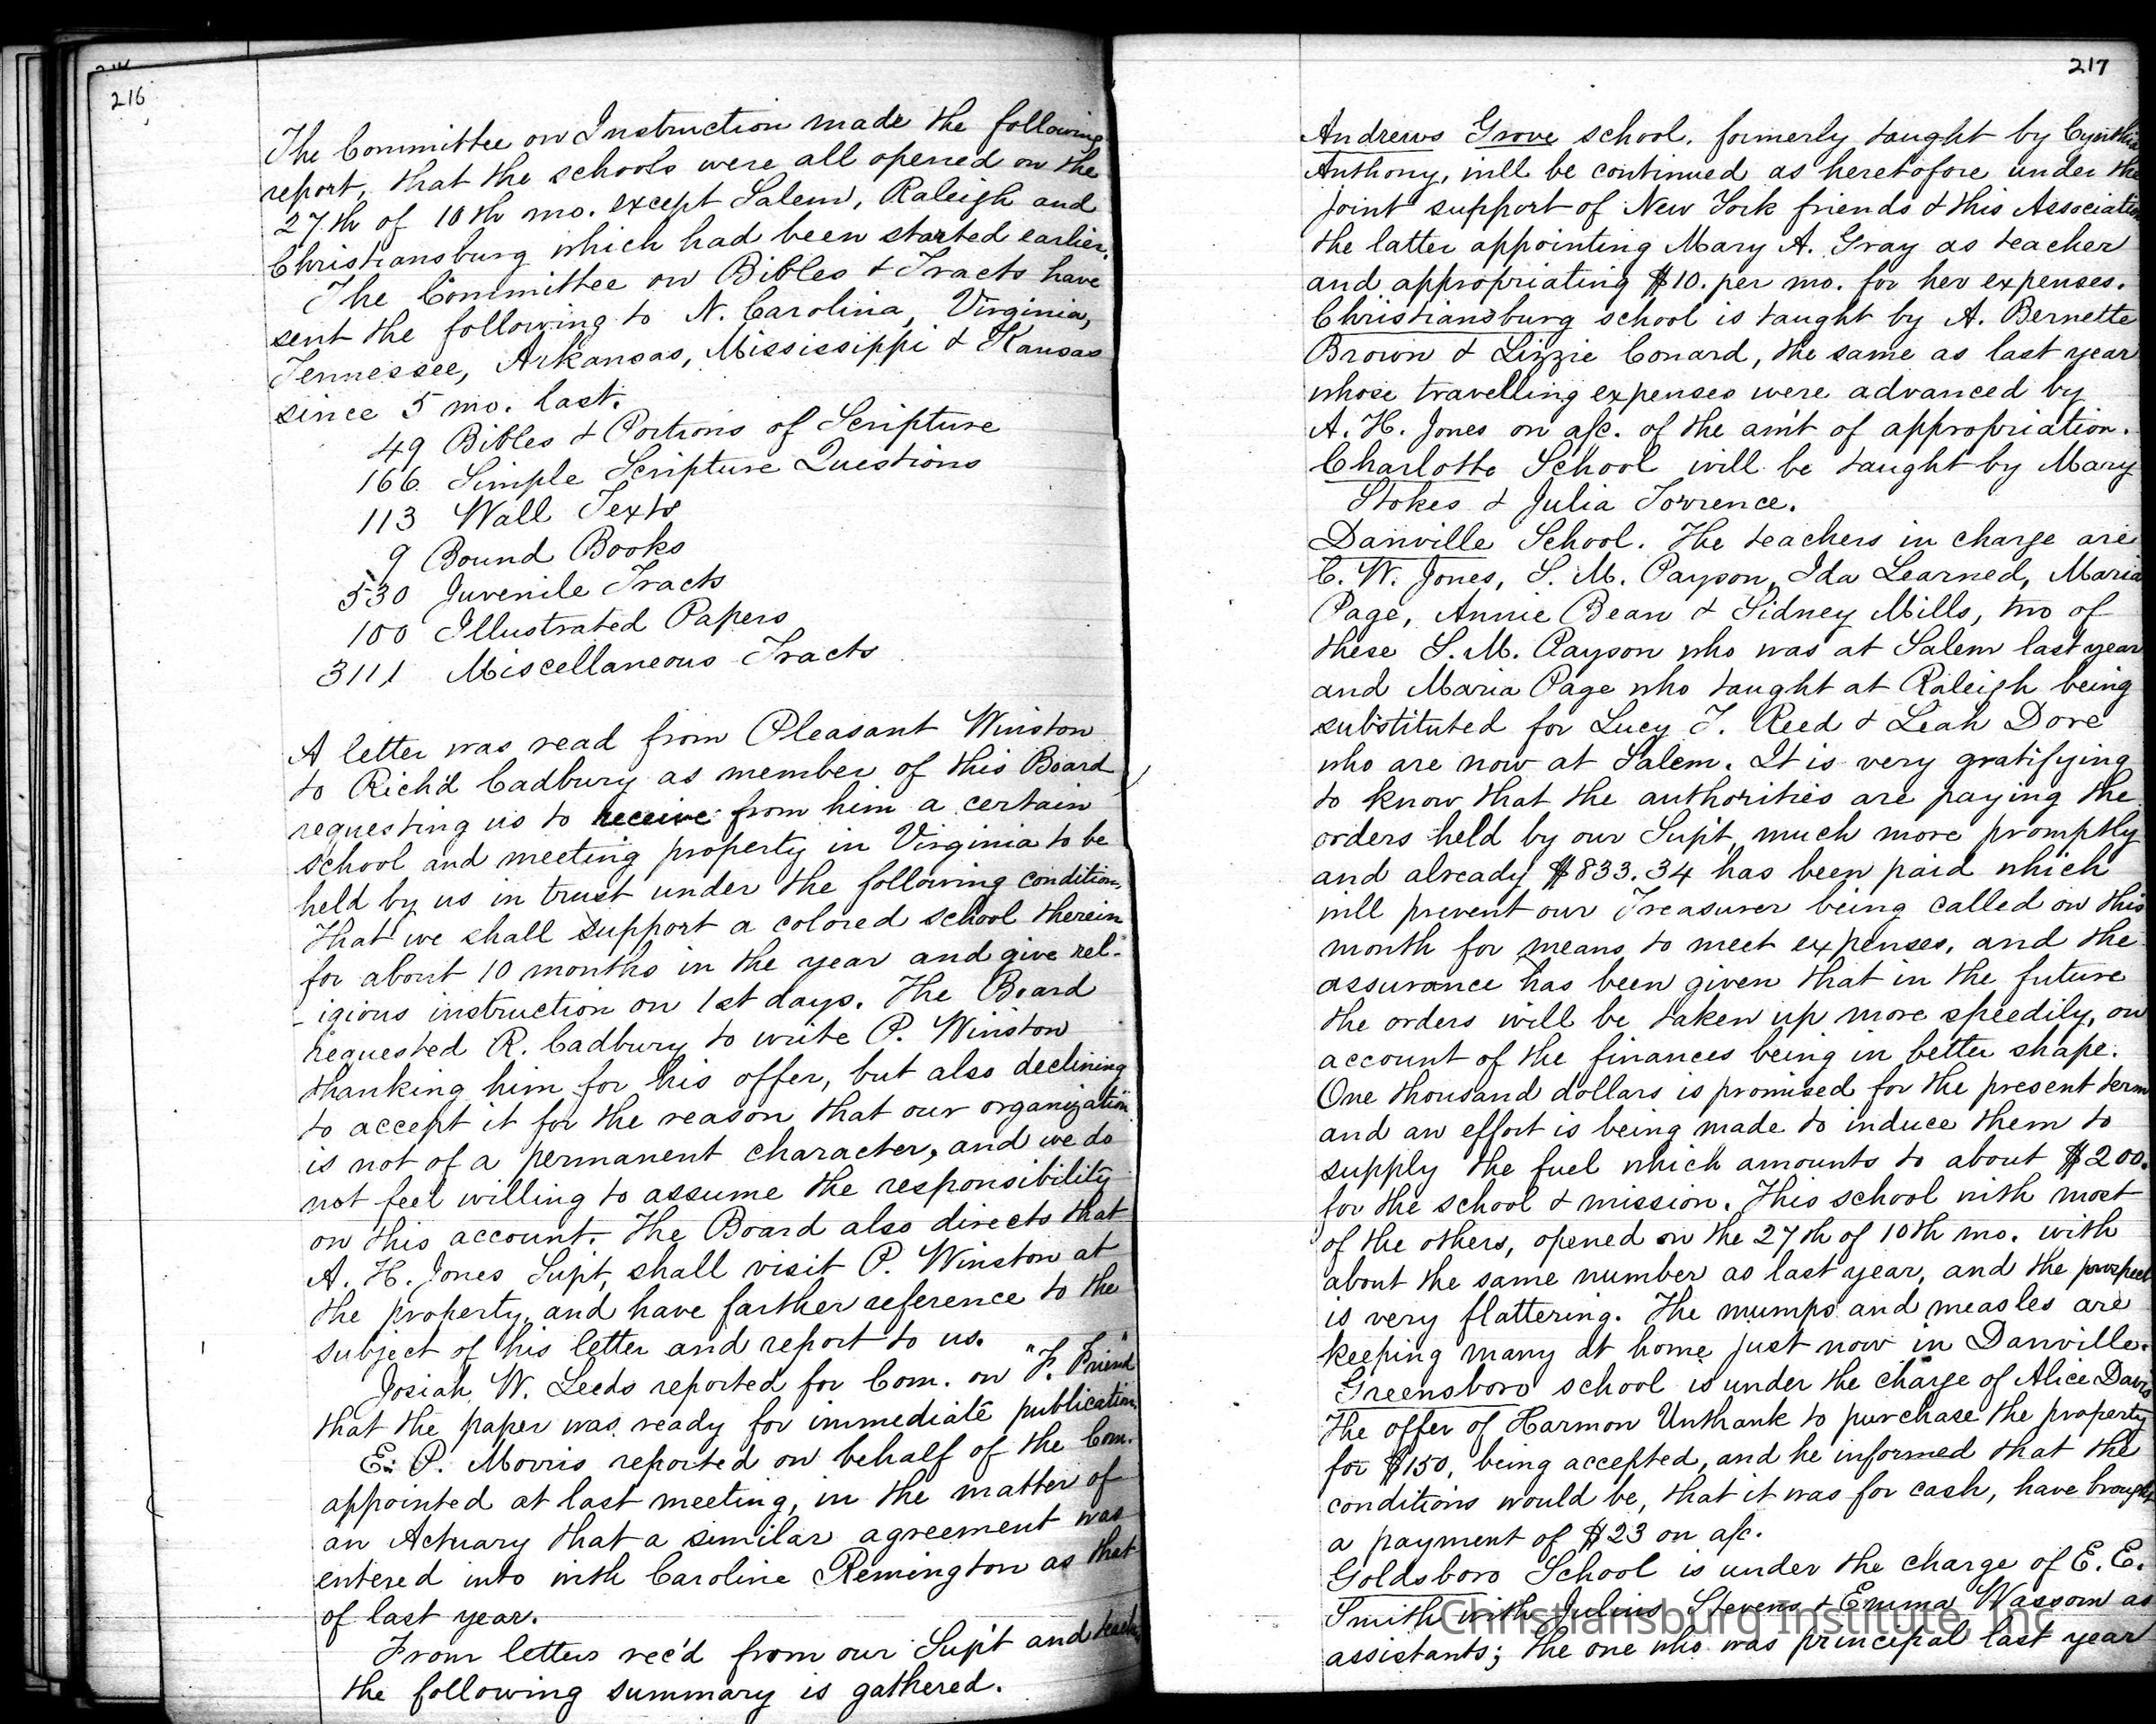 216
The Committee on Instruction made the following
report, that the schools were all opened on the
27th of 10th mo. except Salem, Raleigh and
Christiansburg which had been started earlier.
The Committee on Bibles & Tracts have
sent the following to N. Carolina, Virginia,
Tennessee, Arkansas, Mississippi & Kansas
since 5 mo. last.
49 Bibles & Portions of Scripture
166 Simple Scripture Questions
113 Wall Texts
9 Bound Books
530 Juvenile Tracts
100 Illustrated Papers
3111 Miscellaneous Tracts
A letter was read from Pleasant Winston
to Rich'd Cadbury as member of this Board
requesting us to receive from him a certain
school and meeting property in Virginia to be
held by us in trust under the following condition,
that we shall support a colored school therein
for about 10 months in the year and give rel-
-igious instruction on 1st days. The Board
requested R. Cadbury to write P. Winston
thanking him for his offer, but also declining
to accept it for the reason that our organization
is not of a permanent character, and we do
not feel willing to assume the responsibility
on this account. The Board also directs that
A. H. Jones Sup't, shall visit P. Winston at
the property, and have farther reference to the
subject of his letter and report to us.
Josiah W. Leeds reported for Com. on "F. Friend"
that the paper was ready for immediate publication.
E. P. Morris reported on behalf of the Com.
appointed at last meeting, in the matter of
an Actuary that a similar agreement was
entered into with Caroline Remington as that
of last year.
From letters rec'd from our Sup't and teachers
the following summary is gathered.
217
Andrews Grove school, formerly taught by Cynthia
Anthony, will be continued as heretofore under the
joint support of New York friends & this Association
the latter appointing Mary A. Gray as teacher
and appropriating $10. per mo. for her expenses.
Christiansburg school is taught by A. Bernette
Brown & Lizzie Conard, the same as last year
whose travelling expenses were advanced by
A. H. Jones on a/c. of the am't of appropriation.
Charlotte School will be taught by Mary
Stokes & Julia Torrence.
Danville School. The teachers in charge are
C. W. Jones, S. M. Payson, Ida Learned, Maria
Page, Annie Bean & Sidney Mills, two of
these S. M. Payson who was at Salem last year
and Maria Page who taught at Raleigh being
substituted for Lucy T. Reed & Leah Dore
who are now at Salem. It is very gratifying
to know that the authorities are paying the
orders held by our Sup't, much more promptly
and already $833.34 has been paid which
will prevent our Treasurer being called on this
month for means to meet expenses, and the
assurance has been given that in the future
the orders will be taken up more speedily, on
account of the finances being in better shape.
One thousand dollars is promised for the present term
and an effort is being made to induce them to
supply the fuel which amounts to about $200.
for the school & mission. This school with most
of the others, opened on the 27th of 10th mo. with
about the same number as last year, and the prospect
is very flattering. The mumps and measles are
keeping many at home just now in Danville.
Greensboro school is under the charge of Alice Davis
The offer of Harmon Unthank to purchase the property
for $150, being accepted, and he informed that the
conditions would be, that it was for cash, have brought
a payment of $23 on a/c.
Goldsboro School is under the charge of E. E.
Smith with Julius Stevens & Emma Wassom as
assistants; the one who was principal last year
Christiansburg Institute, Inc